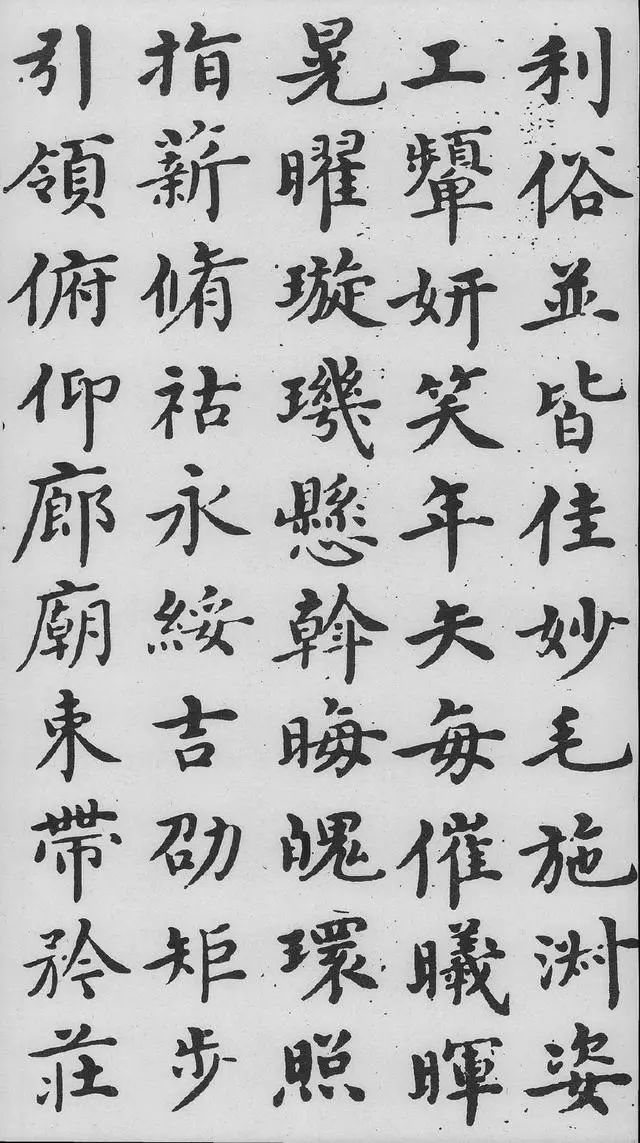 利俗並皆佳妙毛施淵姿
工顰妍笑年矢每催曦暉
晃曜璇璣懸斡晦魄環照
指薪脩祜永綏吉劭矩步
引領俯仰廊廟束帶矜莊